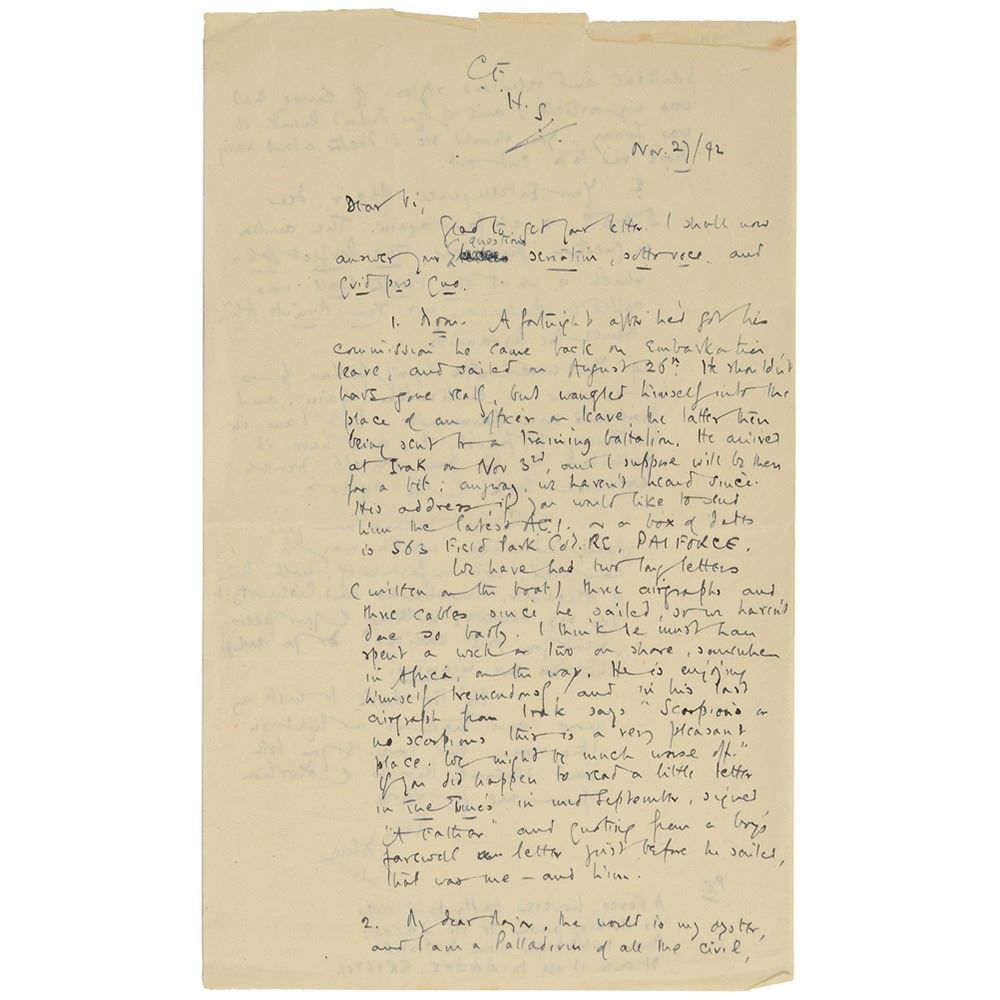 C.F.
H.
S.
Nov. 27/42
Dear Vi,
Glad to get your letter. I shall now
answer your questions seriatim, sotto voce and
quid pro quo.
1. Moon. A fortnight after he'd got his
commission he came back on Embarkation
leave, and sailed on August 26th. He shouldn't
have gone really, but wangled himself into the
place of an officer on leave, the latter then
being sent to a training battalion. He arrived
at Irak on Nov 3rd, and I suppose will be there
for a bit; anyway, we haven't heard since.
His address, if you would like to send
him the latest A.C.I. or a box of dates
is 563 Field Park Coy. RE, PAIFORCE.
We have had two long letters
(written on the boat) three airgraphs and
three cables since he sailed, so we haven't
done so badly. I think he must have
spent a week or two on shore, somewhere
in Africa, on the way. He is enjoying
himself tremendously, and in his last
airgraph from Irak says "Scorpions or
no scorpions this is a very pleasant
place. We might be much worse off."
If you did happen to read a little letter
in The Times in mid September, signed
"A Father" and quoting from a boy's
farewell letter just before he sailed,
that was me — and him.
2. My dear Major, the world is my oyster,
and I am a Palladium of all the civil,